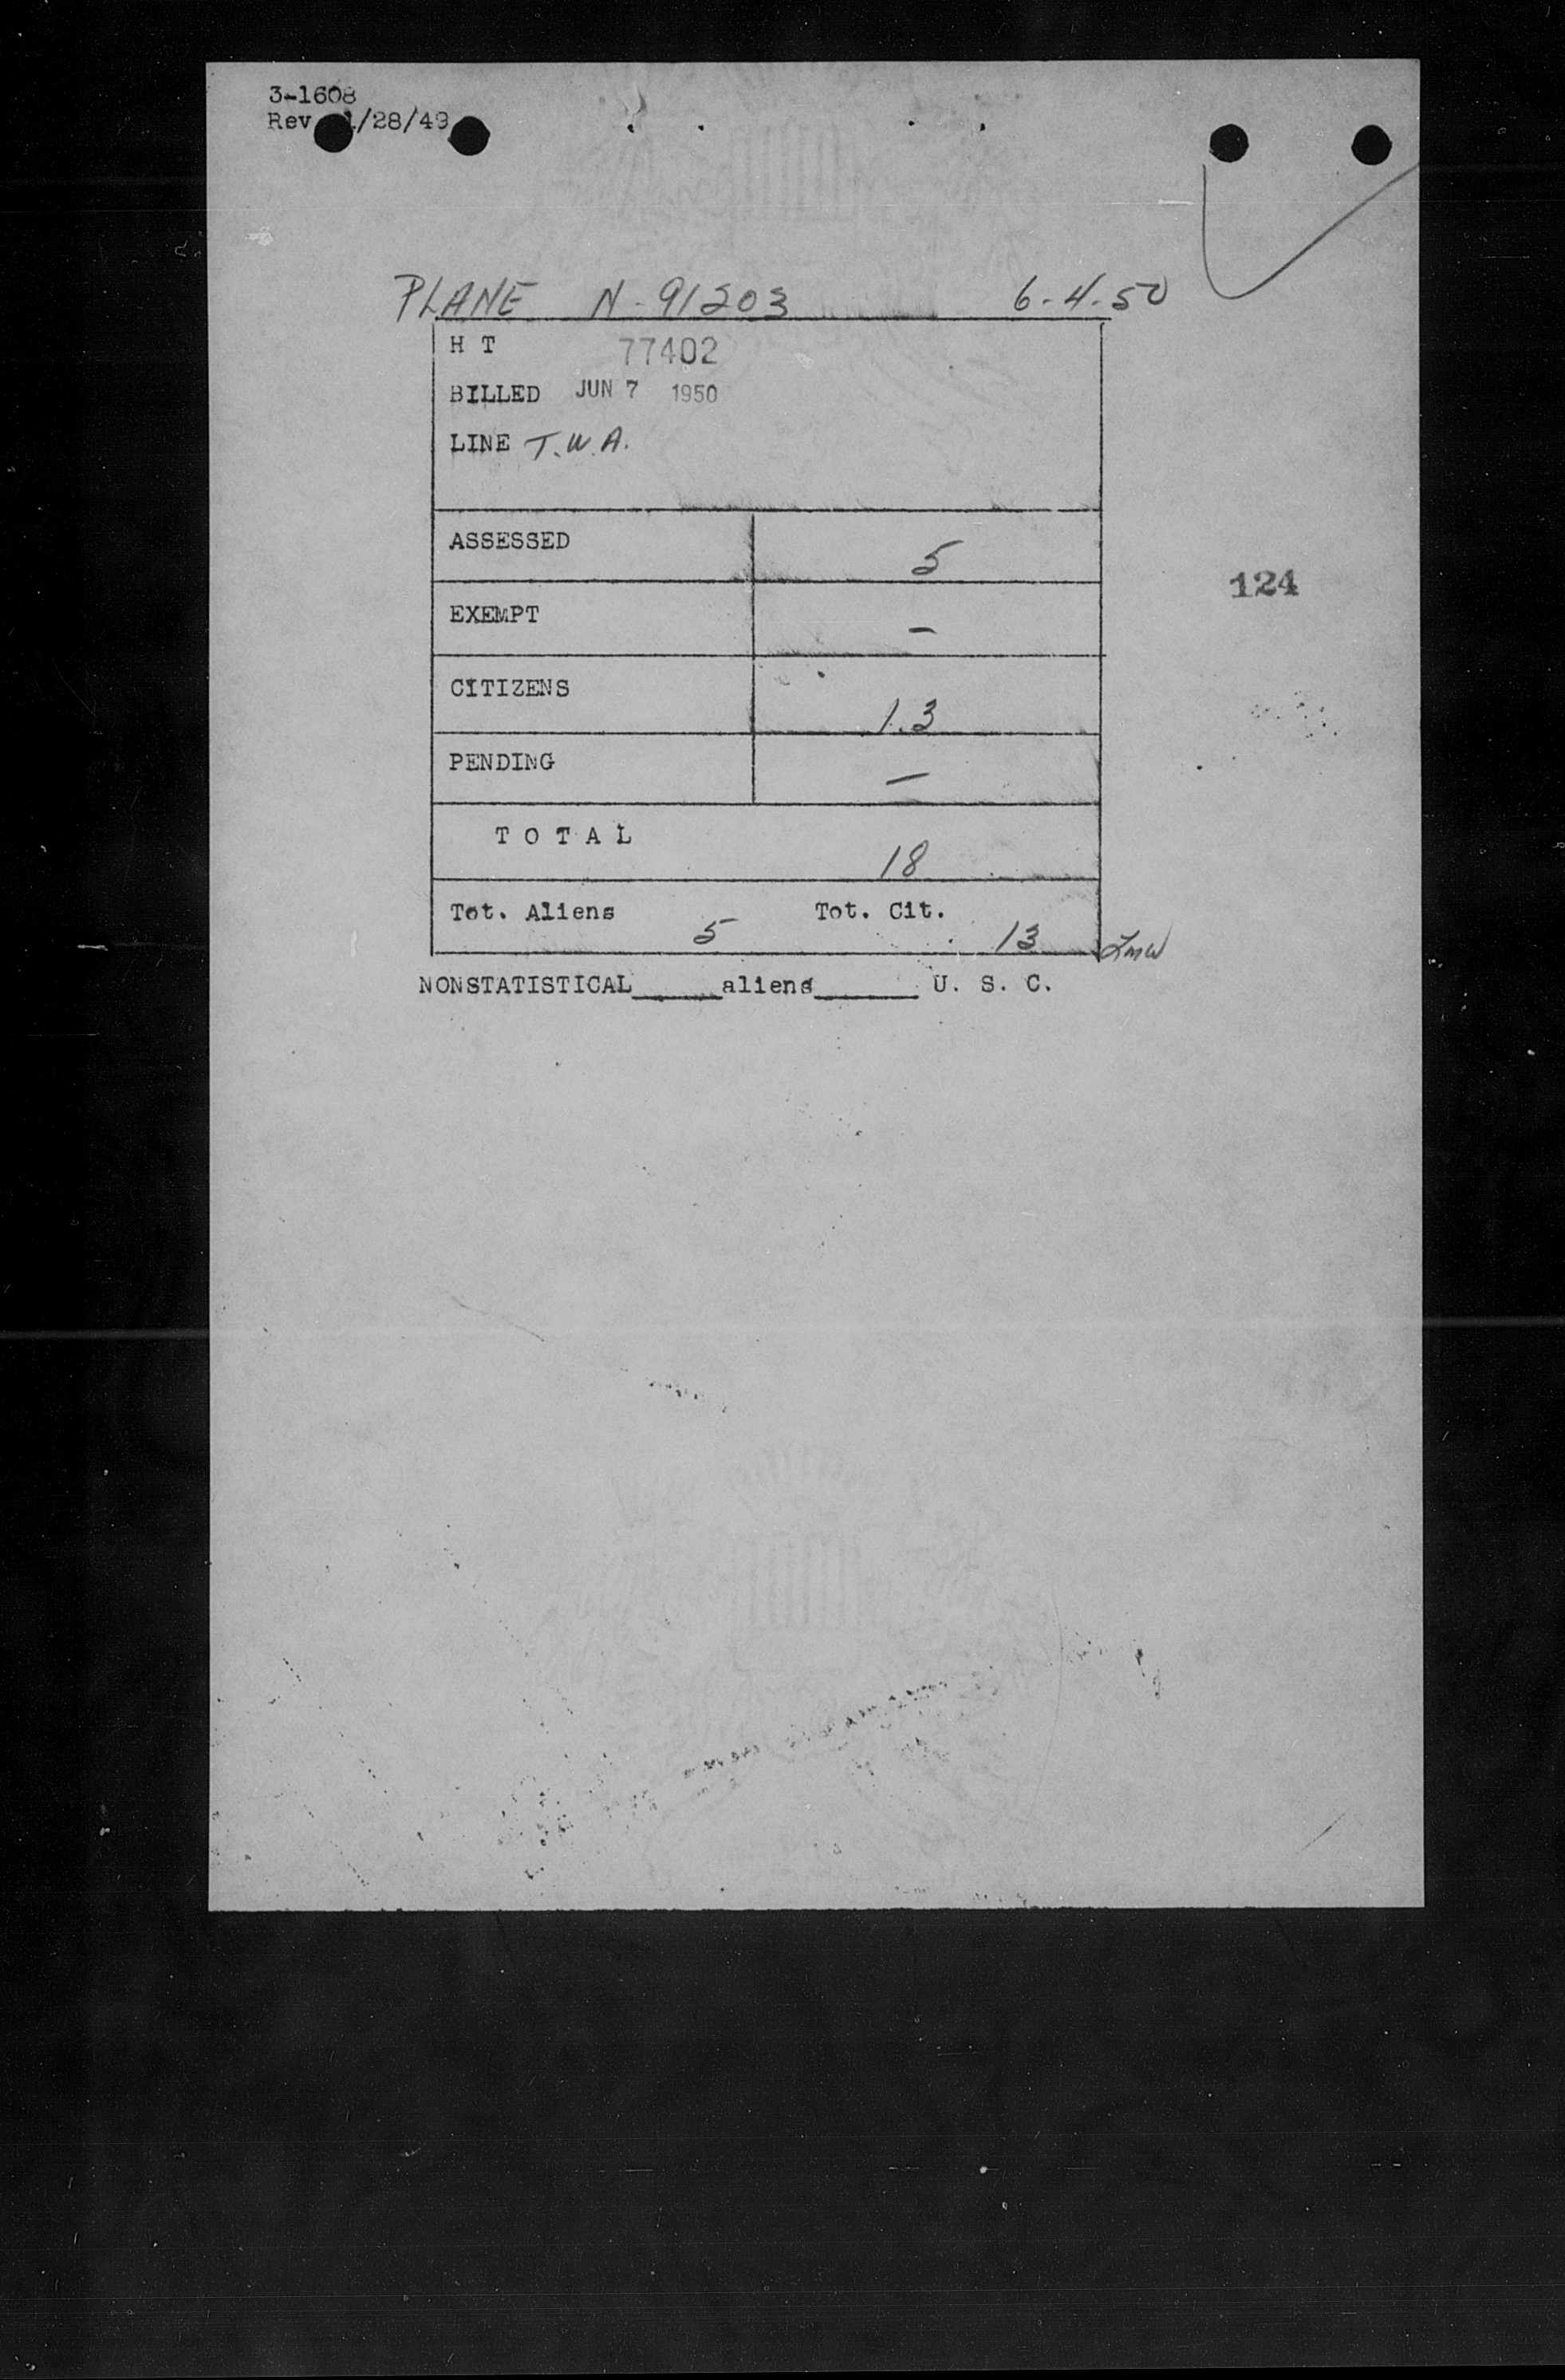 3-1608
Rev 1/28/49
PLANE N-91203 6-4-50
H T 77402
BILLED JUN 7 1950
LINE T.W.A.
ASSESSED 5
124
EXEMPT -
CITIZENS 13
PENDING -
TOTAL 18
Tot. Aliens 5 Tot. Cit. 13
NONSTATISTICAL_____aliens_____ U. S. C.